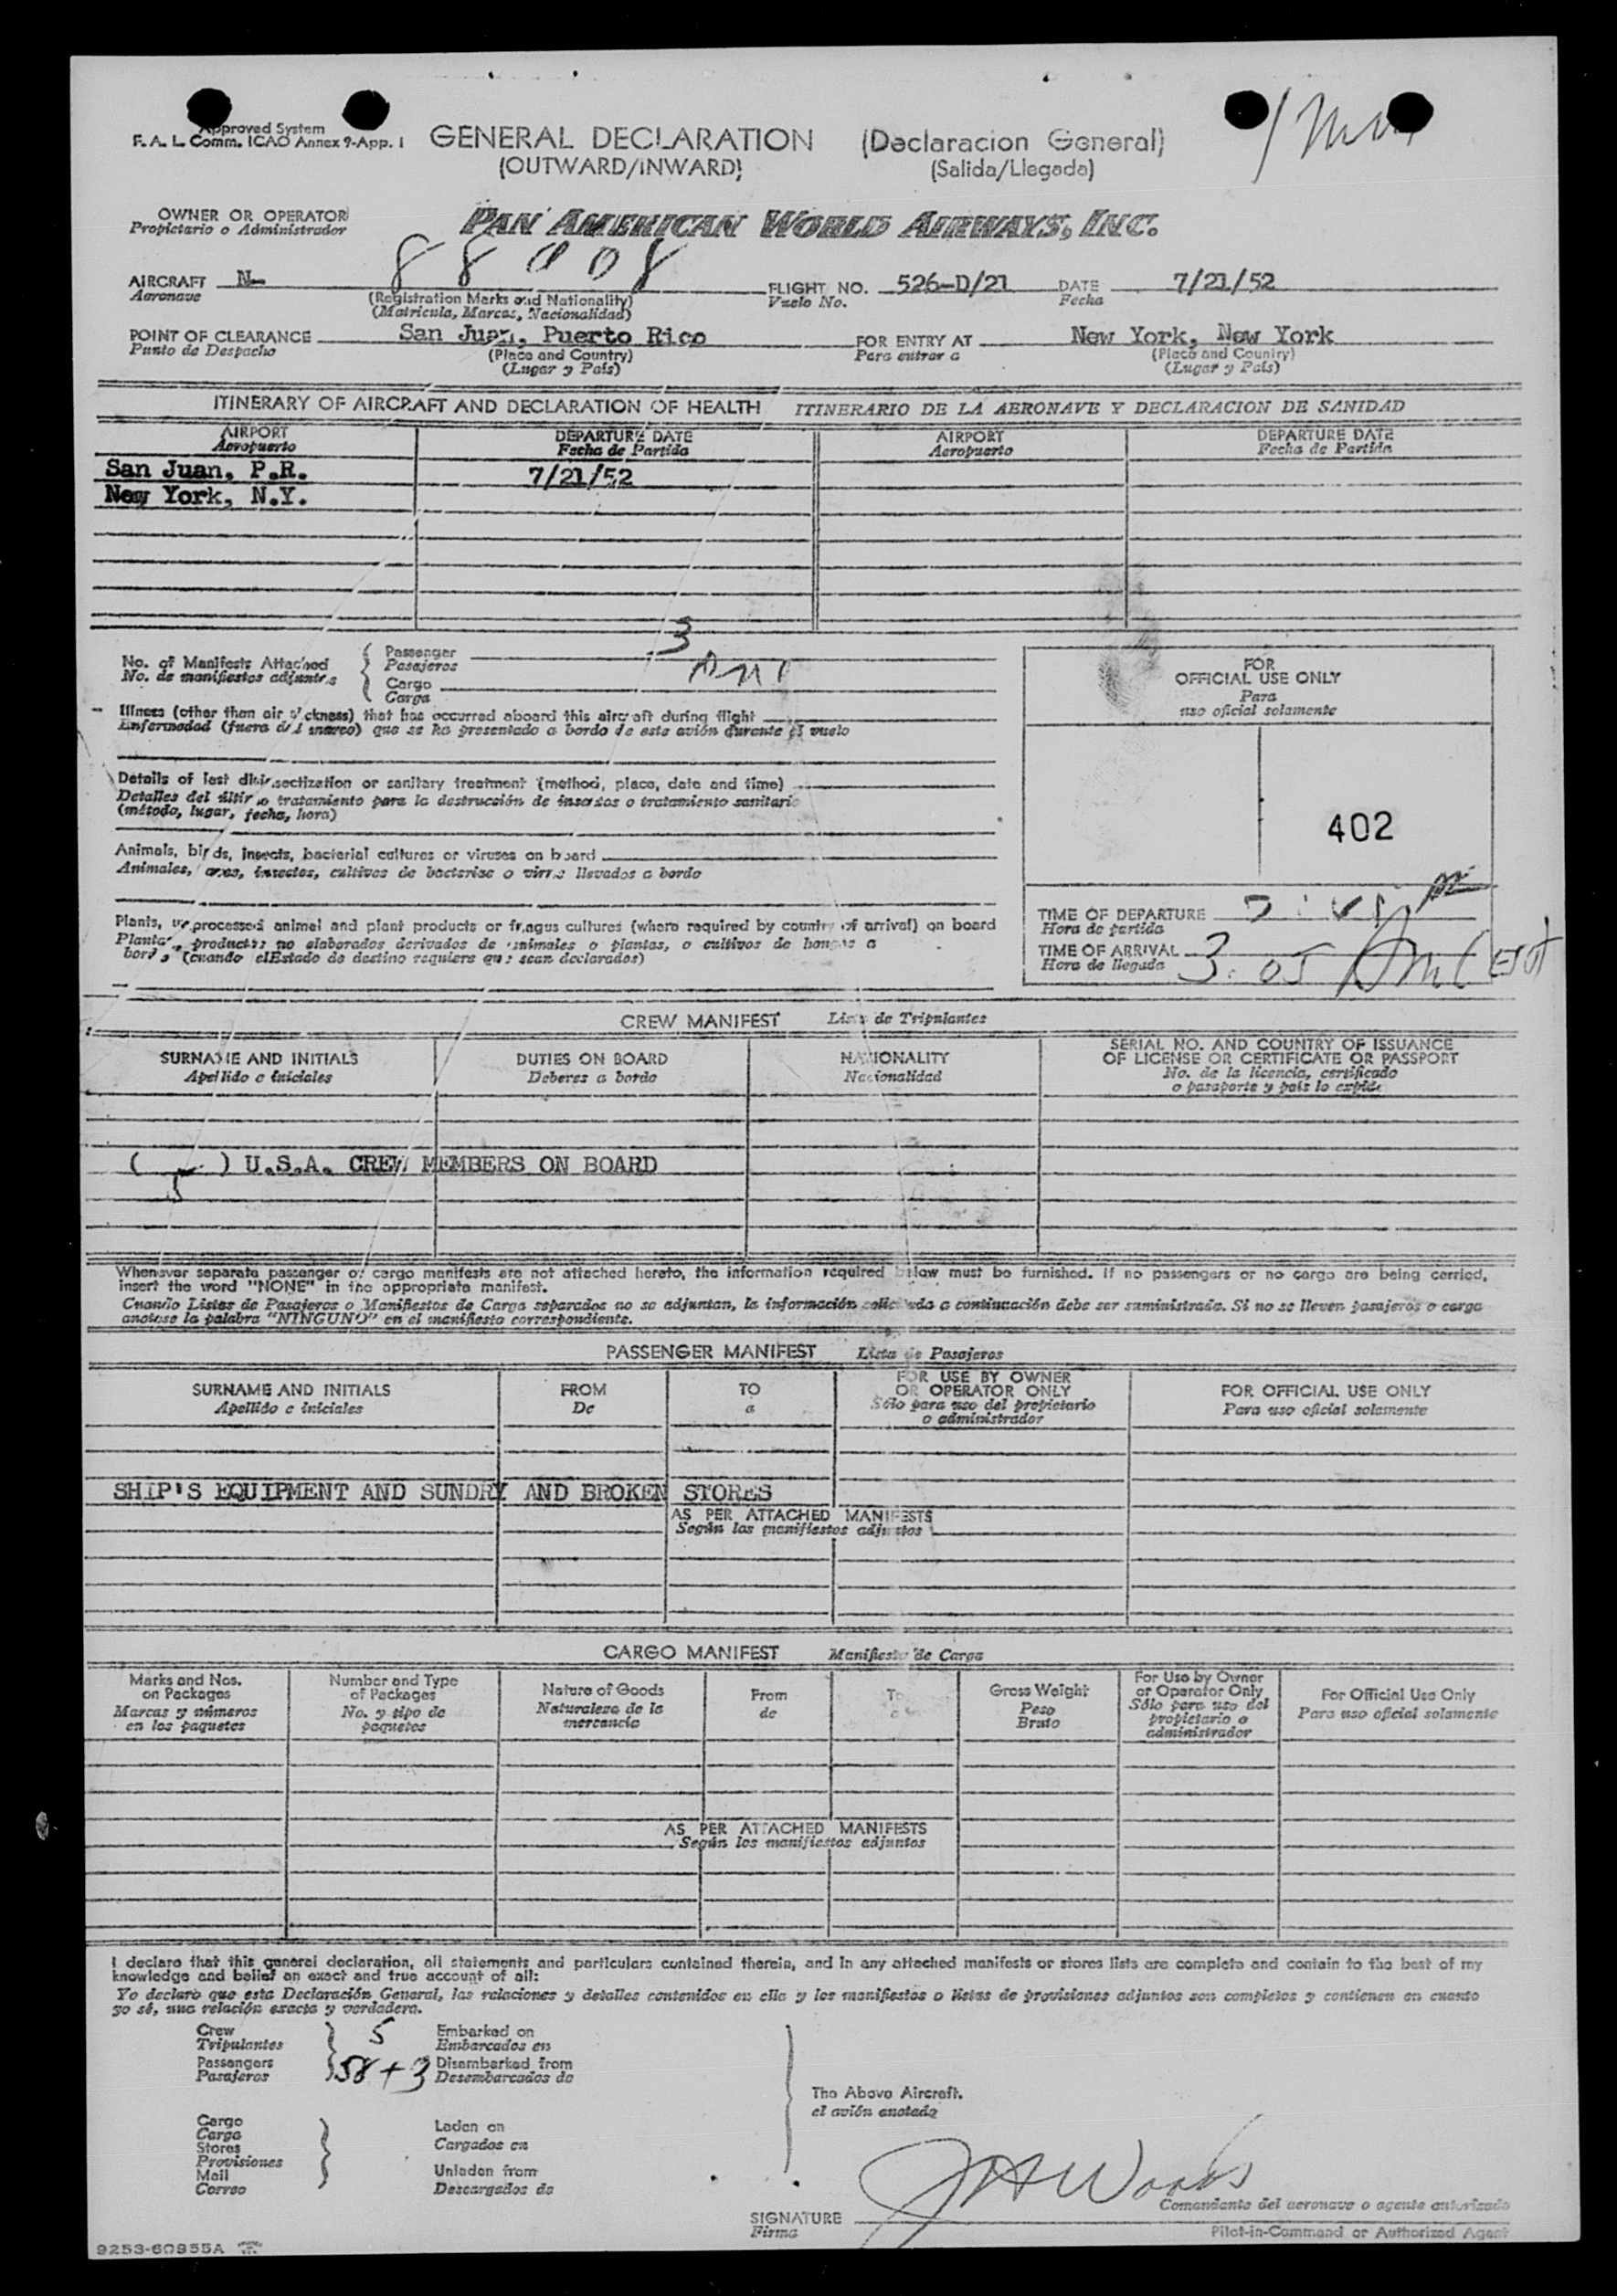 Approved System
F. A. L. Comm. ICAO Annex 9-App. 1
GENERAL DECLARATION (Declaracion General)
(OUTWARD/INWARD) (Salida/Llegada)
OWNER OR OPERATOR
Propietario o Administrador
PAN AMERICAN WORLD AIRWAYS, INC.
AIRCRAFT N- 88908 FLIGHT NO. 526-D/21 DATE 7/21/52
Aeronave (Registration Marks and Nationality) Vuelo No. Fecha
(Matricula, Marcas, Nacionalidad)
POINT OF CLEARANCE San Juan, Puerto Rico FOR ENTRY AT New York, New York
Punto de Despacho (Place and Country) Para entrar a (Place and Country)
(Lugar y País) (Lugar y País)
ITINERARY OF AIRCRAFT AND DECLARATION OF HEALTH ITINERARIO DE LA AERONAVE Y DECLARACION DE SANIDAD
AIRPORT DEPARTURE DATE AIRPORT DEPARTURE DATE
Aeropuerto Fecha de Partida Aeropuerto Fecha de Partida
San Juan, P.R. 7/21/52
New York, N.Y.
No. of Manifests Attached
No. de manifiestos adjuntos
Passenger 3
Pasajeros
Cargo
Carga
FOR
OFFICIAL USE ONLY
Para
uso oficial solamente
Illness (other than air sickness) that has occurred aboard this aircraft during flight
Enfermedad (fuera del mareo) que se ha presentado a bordo de este avión durante el vuelo
Details of last disinsectization or sanitary treatment (method, place, date and time)
Detalles del último tratamiento para la destrucción de insectos o tratamiento sanitario
(método, lugar, fecha, hora)
402
Animals, birds, insects, bacterial cultures or viruses on board
Animales, aves, insectos, cultivos de bacterias o virus llevados a bordo
Plants, unprocessed animal and plant products or fungus cultures (where required by country of arrival) on board
Plantas, productos no elaborados derivados de animales o plantas, o cultivos de hongos a
bordo (cuando el Estado de destino requiera que sean declarados)
TIME OF DEPARTURE
Hora de partida
TIME OF ARRIVAL 3:05 AM (EST
Hora de llegada
CREW MANIFEST Lista de Tripulantes
SURNAME AND INITIALS DUTIES ON BOARD NATIONALITY SERIAL NO. AND COUNTRY OF ISSUANCE
OF LICENSE OR CERTIFICATE OR PASSPORT
Apellido e iniciales Deberes a bordo Nacionalidad No. de la licencia, certificado
o pasaporte y país lo expide
( 5 ) U.S.A. CREW MEMBERS ON BOARD
Whenever separate passenger or cargo manifests are not attached hereto, the information required below must be furnished. If no passengers or no cargo are being carried,
insert the word "NONE" in the appropriate manifest.
Cuando Listas de Pasajeros o Manifiestos de Carga separados no se adjuntan, la información solicitada a continuación debe ser suministrada. Si no se lleven pasajeros o carga
anotese la palabra "NINGUNO" en el manifiesto correspondiente.
PASSENGER MANIFEST Lista de Pasajeros
SURNAME AND INITIALS FROM TO FOR USE BY OWNER
OR OPERATOR ONLY FOR OFFICIAL USE ONLY
Apellido e iniciales De a Sólo para uso del propietario
o administrador Para uso oficial solamente
SHIP'S EQUIPMENT AND SUNDRY AND BROKEN STORES
AS PER ATTACHED MANIFESTS
Según los manifiestos adjuntos
CARGO MANIFEST Manifiesto de Carga
Marks and Nos.
on Packages
Marcas y números
en los paquetes
Number and Type
of Packages
No. y tipo de
paquetes
Nature of Goods
Naturaleza de la
mercancía
From
de
To
a
Gross Weight
Peso
Bruto
For Use by Owner
or Operator Only
Sólo para uso del
propietario o
administrador
For Official Use Only
Para uso oficial solamente
AS PER ATTACHED MANIFESTS
Según los manifiestos adjuntos
I declare that this general declaration, all statements and particulars contained therein, and in any attached manifests or stores lists are complete and contain to the best of my
knowledge and belief an exact and true account of all:
Yo declaro que esta Declaración General, las relaciones y detalles contenidos en ella y los manifiestos o listas de provisiones adjuntos son completos y contienen en cuanto
yo sé, una relación exacta y verdadera.
Crew 5 Embarked on
Tripulantes Embarcados en
Passengers 58+3 Disembarked from
Pasajeros Desembarcados de
The Above Aircraft.
el avión anotado
Cargo
Carga
Stores
Provisiones
Mail
Correo
Laden on
Cargados en
Unladen from
Descargados de
JH Woods
Comandante del aeronave o agente autorizado
SIGNATURE
Firma
Pilot-in-Command or Authorized Agent
9253-60955A